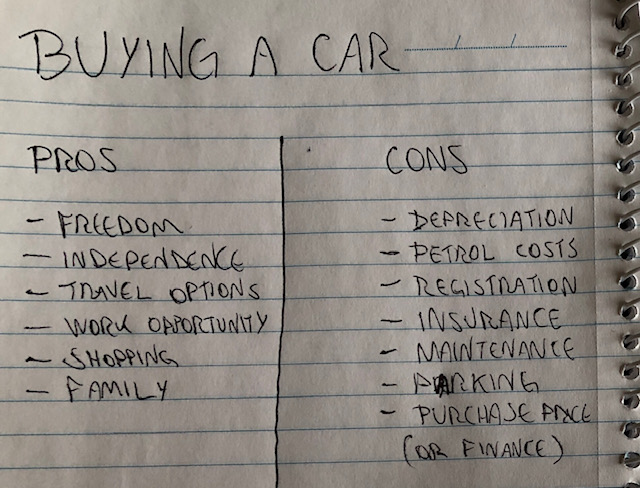 BUYING A CAR
PROS
- FREEDOM
- INDEPENDENCE
- TRAVEL OPTIONS
- WORK OPPORTUNITY
- SHOPPING
- FAMILY
CONS
- DEPRECIATION
- PETROL COSTS
- REGISTRATION
- INSURANCE
- MAINTENANCE
- PARKING
- PURCHASE PRICE
(OR FINANCE)